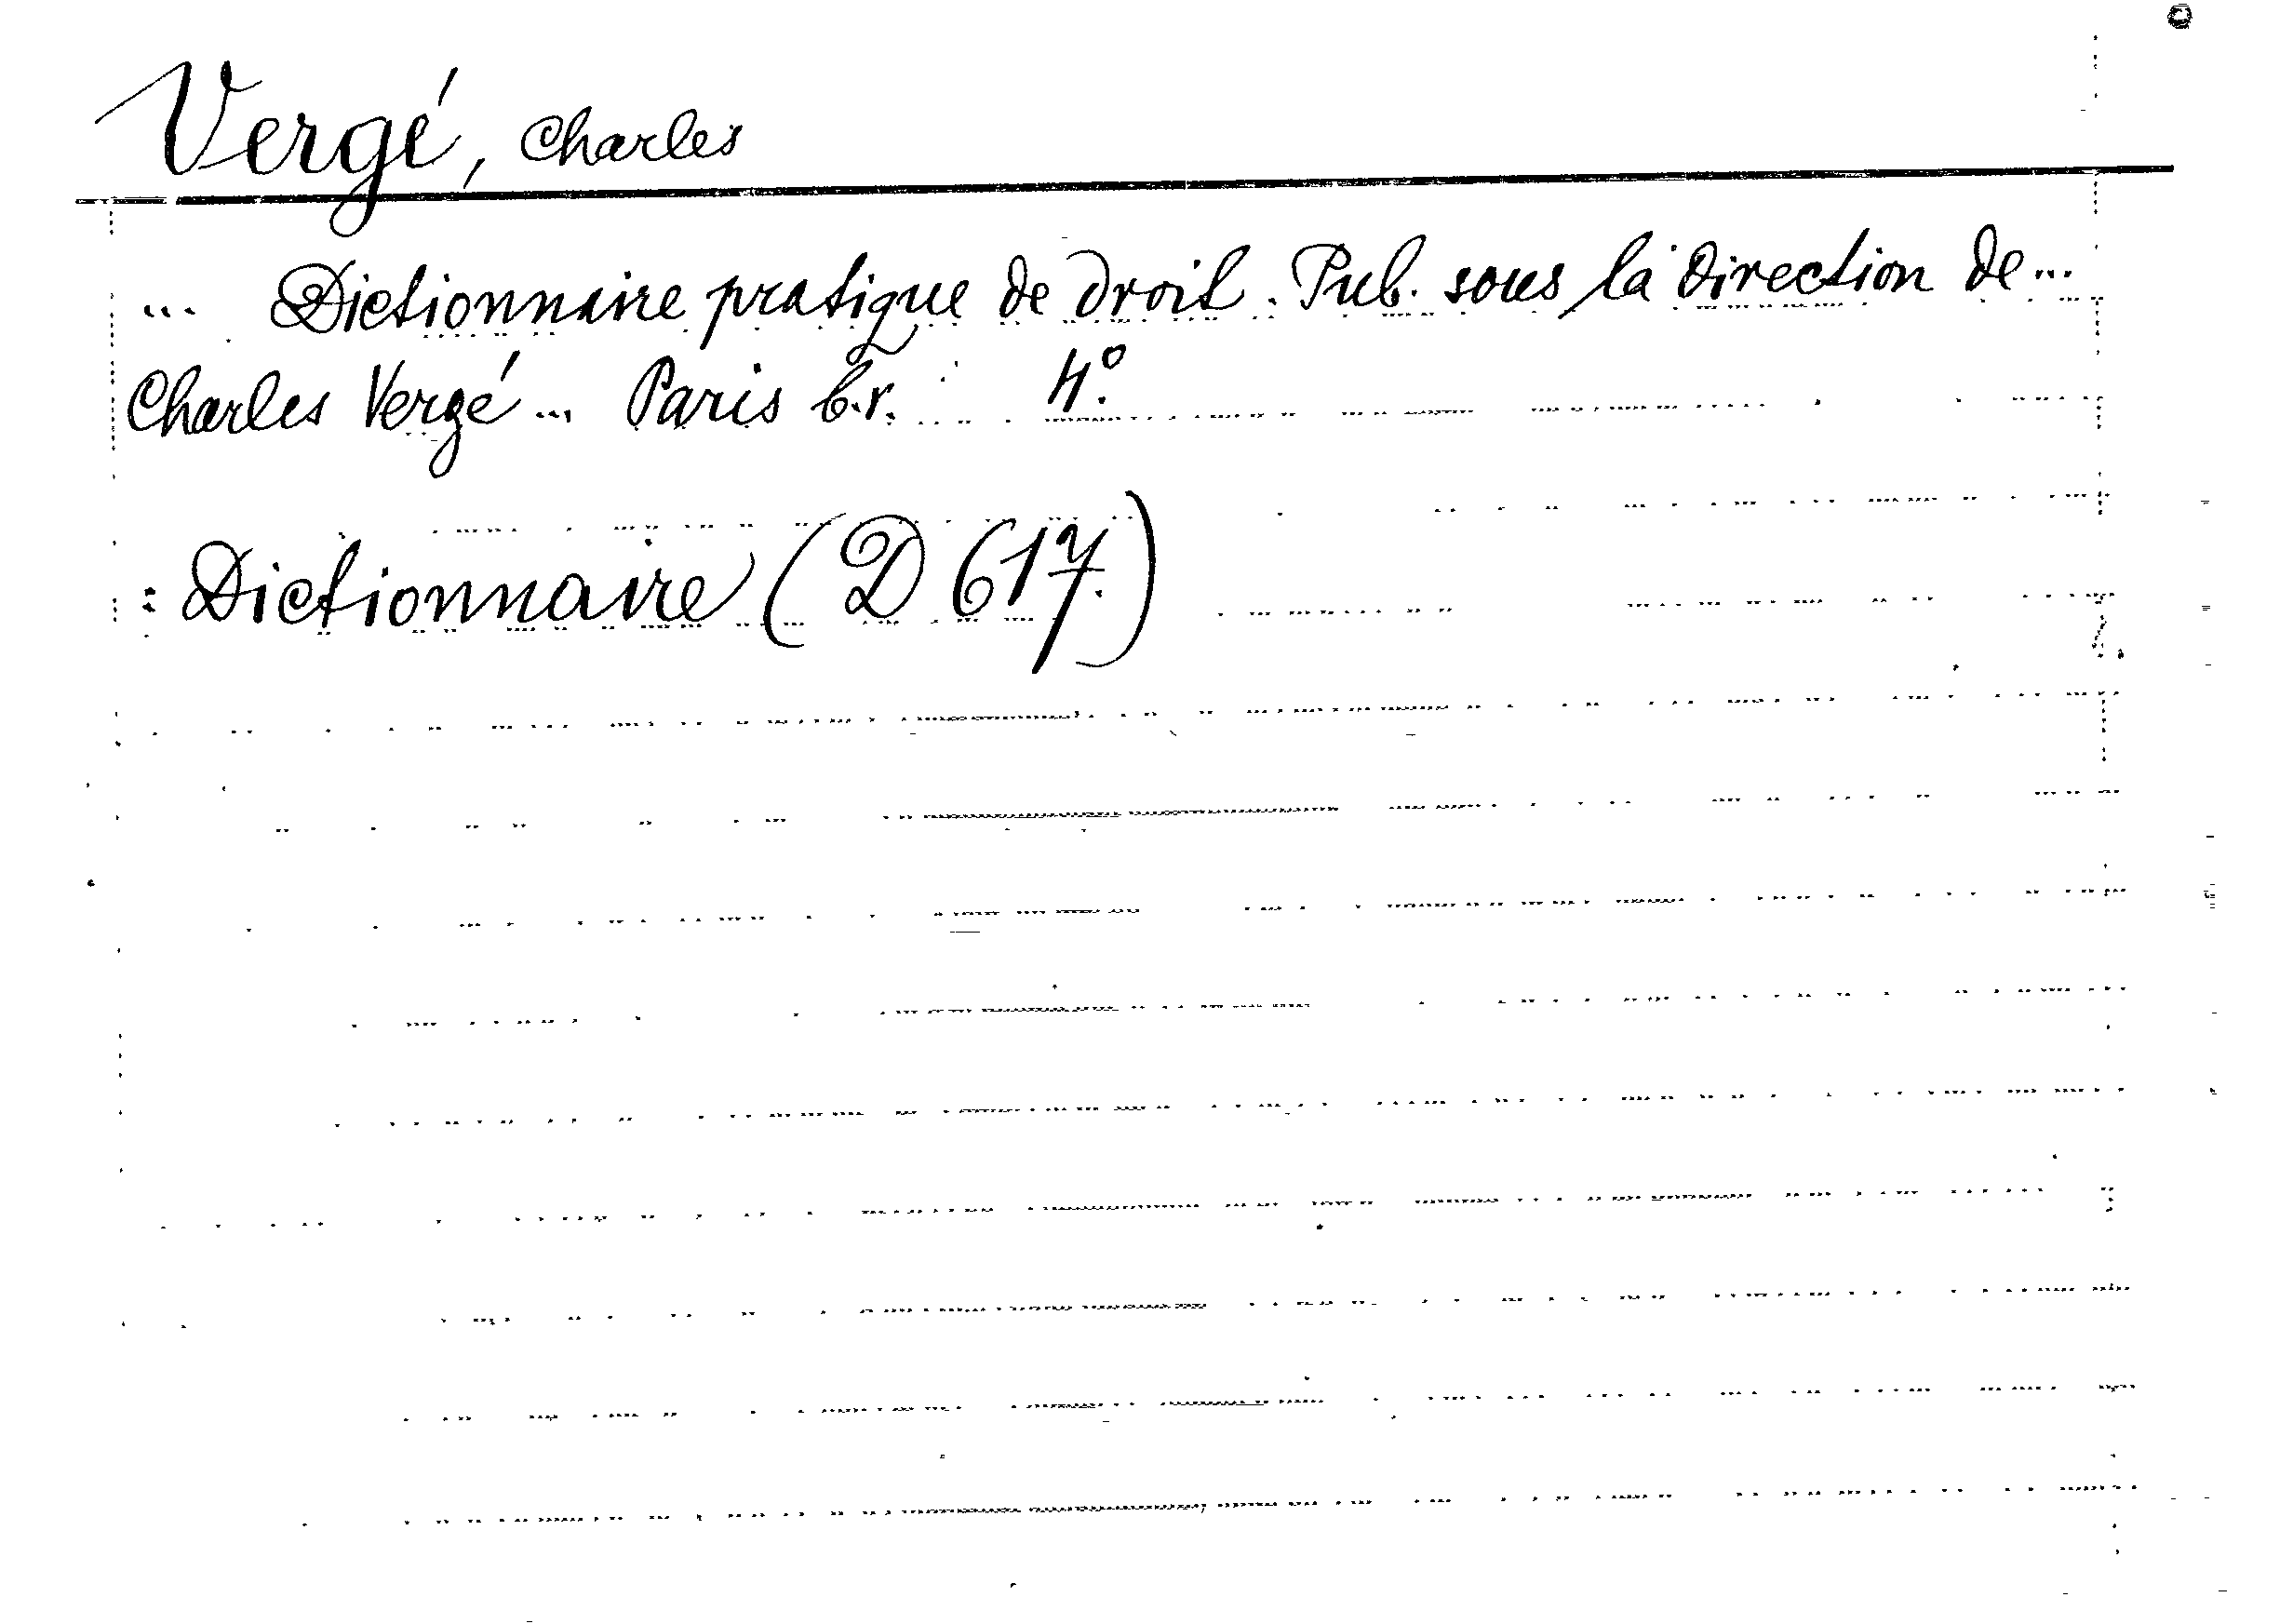 Vergé, Charles
... Dictionnaire pratique de droit. Pub. sous la direction de...
Charles Vergé... Paris b.r. 4°.
: Dictionnaire (D 617.)